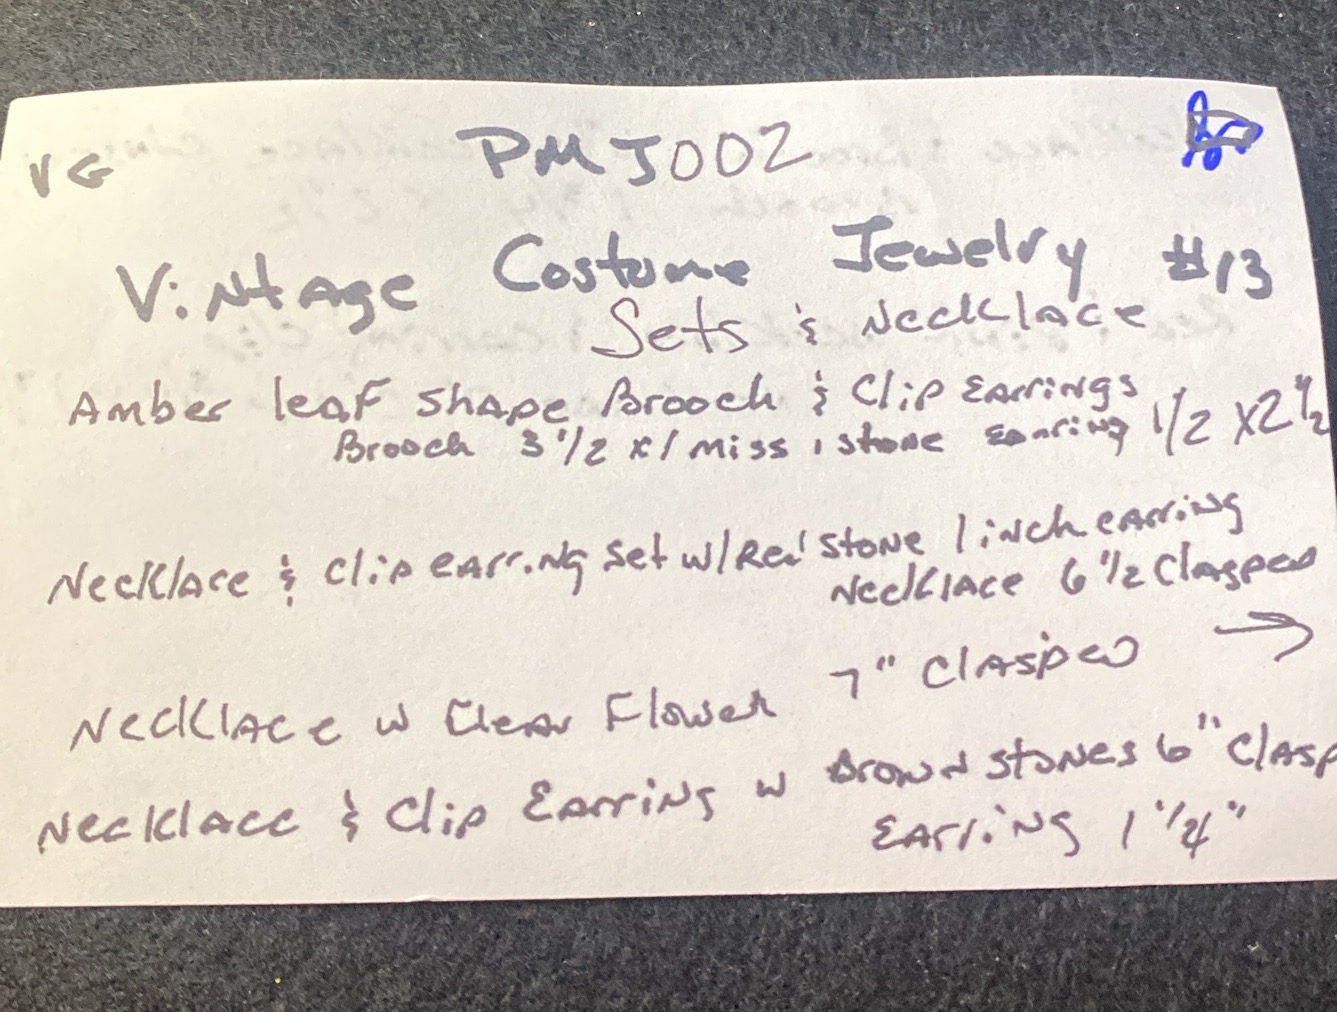 VG
PMJ002
Vintage Costume Jewelry #13
Sets & Necklace
Amber leaf shape Brooch & Clip Earrings
Brooch 3 1/2 x 1 miss 1 stone earring 1/2 x 2 1/2
Necklace & Clip earring set w/Red stone 1 inch earring
Necklace 6 1/2 Clasped
Necklace w Clear Flower 7" Clasped →
Necklace & Clip Earring w Brown stones 6" Clasp
Earring 1 1/4"